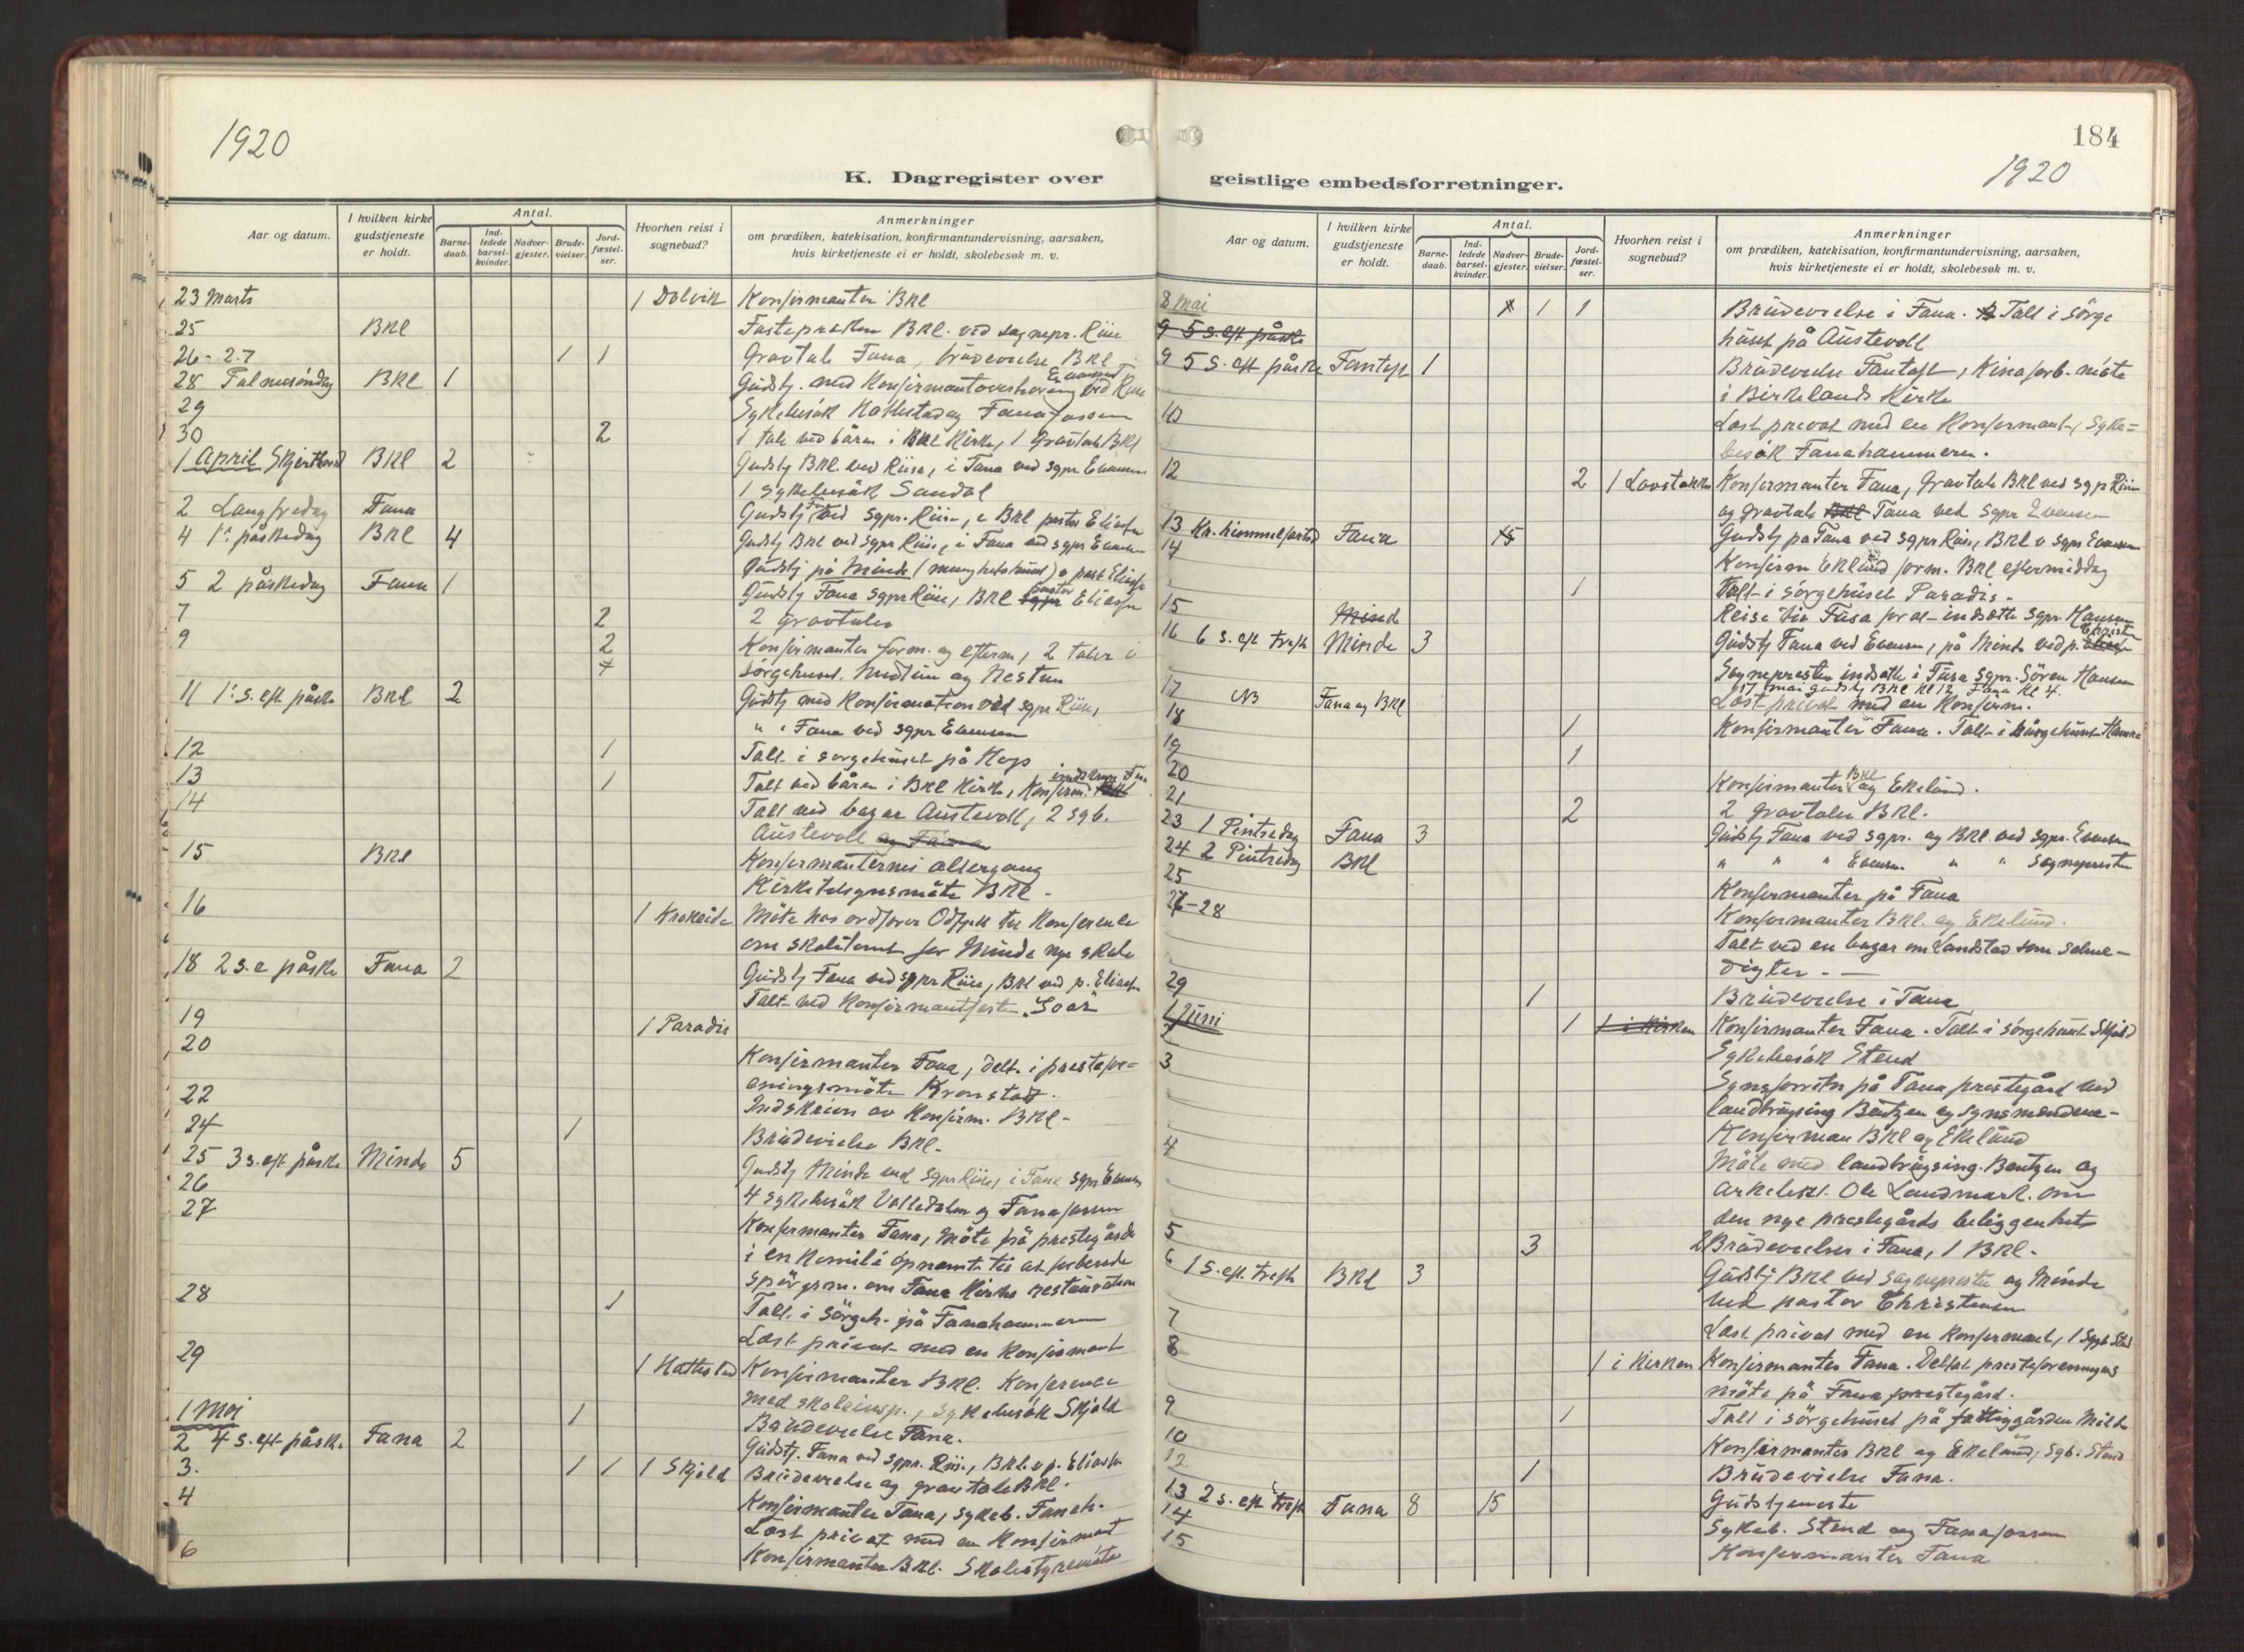 1920
K. Dagregister over
Aar og datum.
I hvilken kirke gudstjeneste er holdt.
Antal.
Barne-daab.
Ind-ledede barsel-kvinder.
Nadver-gjester.
Brude-vielser.
Jord-fæstel-ser.
Hvorhen reist i sognebud?
Anmerkninger
om prædiken, katekisation, konfirmantundervisning, aarsaken,
hvis kirketjeneste ei er holdt, skolebesøk m. v.
23 Marts 1 Dolvik Konfirmanter BKl
25 BKl Fastepræken BKl. ved sognepr. Riise
26 - 27 1 1 Gravtale Fana, brudevielse BKl
28 Palmesöndag BKl 1 Gudstj. med Konfirmantoverhöring ved Riise
29 Sykebesök Fanafossen
30 2 1 tale ved båren i BKl Kirke, 1 Gravtale BKl
1 April Skjærthorsd BKl 2 Gudstj BKl ved Riise, i Fana ved sgpr Evensen
1 sykebesök Sandal
2 Langfredag Fana Gudstj ved sgpr. Riise, i BKl pastor Eliassen
4 1. påskedag BKl 4 Gudstj BKl ved sgpr Riise, i Fana ved sgpr Evensen
Gudstj på Minde (menighetshuset) v past Eliassen
5 2 påskedag Fana 1 Gudstj Fana sgpr Riise, BKl pastor Eliassen
7 2 2 gravtaler
9 2 Konfirmanter form. og efterm, 2 taler i
sörgehuset. Midtun og Nestun
11 1. s. eft påske BKl 2 Gudstj med Konfirmation ved sgpr Riise,
" i Fana ved sgpr Evensen
12 1 Talt i sorgehuset på Hop
13 1 Talt ved båren i BKl Kirke, Konfirm.
14 Talt ved bazar Austevoll, 2 sgb.
Austevoll og Fana
15 BKl Konfirmanternes altergang
Kirketilsynsmöte BKl -
16 1 Krokeide Möte hos ordförer til Konferense
om skoletomt for Minde nye skole
18 2 s. e påske Fana 2 Gudstj Fana ved sgpr Riise, BKl ved p. Eliassen
Talt ved Konfirmantfesten
19 1 Paradis
20 Konfirmanter Fana, delt. i prestefor-
eningsmöte Kronstad.
22 Indskrivn av Konfirm. BKl -
24 1 Brudevielse BKl.
25 3 s. eft påske Minde 5 Gudstj Minde ved sgpr Riise, i Fana sgpr Evensen
26 4 sykebesök og Fanafossen
27 Konfirmanter Fana, Möte på prestegården
i en Komité opnævnt til at forberede
spörgsm. om Fana Kirkes restauration
28 1 Talt i sörgeh. på Fanahammeren
Læst privat med en Konfirmant
29 1 Hattestad Konfirmanter BKl. Konferense
med skoleinsp., Sykebesök Skjold
1 Mai 1 Brudevielse Fana.
2 4 s. eft påske Fana 2 Gudstj. Fana ved sgpr. Riise, BKl. v p. Eliassen
3. 1 1 1 Skjold Brudevielse og gravtale BKl.
4 Konfirmanter Fana, Sykeb. Fanah.
Læst privat med en Konfirmant
6 Konfirmanter BKl. Skolestyremöte
184
1920
geistlige embedsforretninger.
Aar og datum.
I hvilken kirke gudstjeneste er holdt.
Antal.
Barne-daab.
Ind-ledede barsel-kvinder.
Nadver-gjester.
Brude-vielser.
Jord-fæstel-ser.
Hvorhen reist i sognebud?
Anmerkninger
om prædiken, katekisation, konfirmantundervisning, aarsaken,
hvis kirketjeneste ei er holdt, skolebesøk m. v.
8 Mai 1 1 Brudevielse i Fana. Talt i sörge
9 5 s. eft påske huset på Austevoll
9 5 s. eft påske Fantoft 1 Brudevielse Fantoft, Kinaforb. möte
i Birkelands Kirke
10 Læst privat med en Konfirmant, Syke-
besök Fanahammeren.
12 2 1 Lövstakken Konfirmanter Fana, Gravtale BKl ved sgpr Riise
og gravtale BKl Fana ved sgpr Evensen
13 Kr. himmelfartsd Fana Gudstj på Fana ved sgpr Riise, BKl v sgpr Evensen
14 Konfirm Eklund form. BKl eftermiddag
1 Talt i sörgehuset Paradis -
15 Minde Reise til Fusa for at indsætte sgpr Hansen
16 6 s. eft påske Minde 3 Gudstj Fana ved Evensen, på Minde ved p. Christensen
Sognepresten indsatte i Fusa sgpr. Sören Hansen
17 NB Fana og BKl 17 mai gudstj BKl kl 12, Fana Kl 4.
Læst privat med en Konfirm.
18 1 Konfirmanter Fana. Talt i sörgehuset
19 1
20 Konfirmanter BKl og Ekelund.
21 2 2 gravtaler BKl.
23 1 Pintsedag Fana 3 Gudstj Fana ved sgpr. og BKl ved sgpr. Evensen
24 2 Pintsedag BKl " " " Evensen " " Sognepresten
25 Konfirmanter på Fana
27-28 Konfirmanter BKl. og Ekelund.
Talt ved en bazar om Landstad som salme-
digter. -
29 1 Brudevielse i Fana
1 Juni 1 1 i Kirken Konfirmanter Fana. Talt i sörgehuset Skjold
2 Sykebesök Stend
3 Synsforretn på Fana prestegård ved
landbruging Bentzen og synsmændene -
Konfirman BKl og Ekelund
4 Möte med landbruging. Bentzen og
arkitekt. Ole Landmark. om
den nye prestegårds beliggenhet
5 3 2 Brudevielser i Fana, 1 BKl.
6 1 s. eft. trefh BKl 3 Gudstj BKl ved sognepresten og Minde
ved pastor Christensen
7 Læst privat med en Konfirmant,
8 1 i Kirken Konfirmanter Fana. Deltat presteforenings
möte på Fana prestegård.
9 1 Talt i sörgehuset på fattiggården Milde
10 Konfirmanter BKl og Ekelund, Sgb. Stend
12 1 Brudevielse Fana.
13 2 s. eft trefh Fana 8 15 Gudstjeneste
14 Sykeb. Stend og Fanafossen
15 Konfirmanter Fana